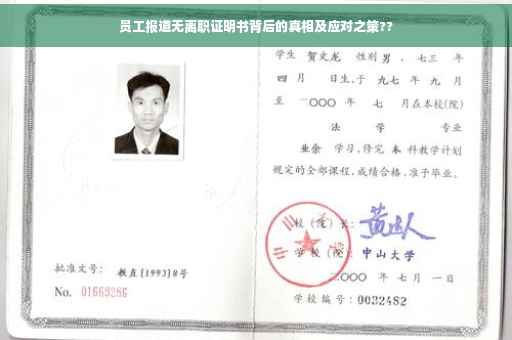 员工报道无离职证明书背后的真相及应对之策??
学生 贺文龙 性别 男 、七三 年
四 月 日生,于 九七 年 九 月
至 二〇〇〇 年 七 月在本校(院)
法 学 专业
业余 学习,修完 本 科教学计划
规定的全部课程,成绩合格,准予毕业。
校(院)长:
学 校(院) 中山大学
二〇〇〇 年 七 月 一 日
批准文号: 教直[1993]8号
No. 01669286
学校编号:0032482